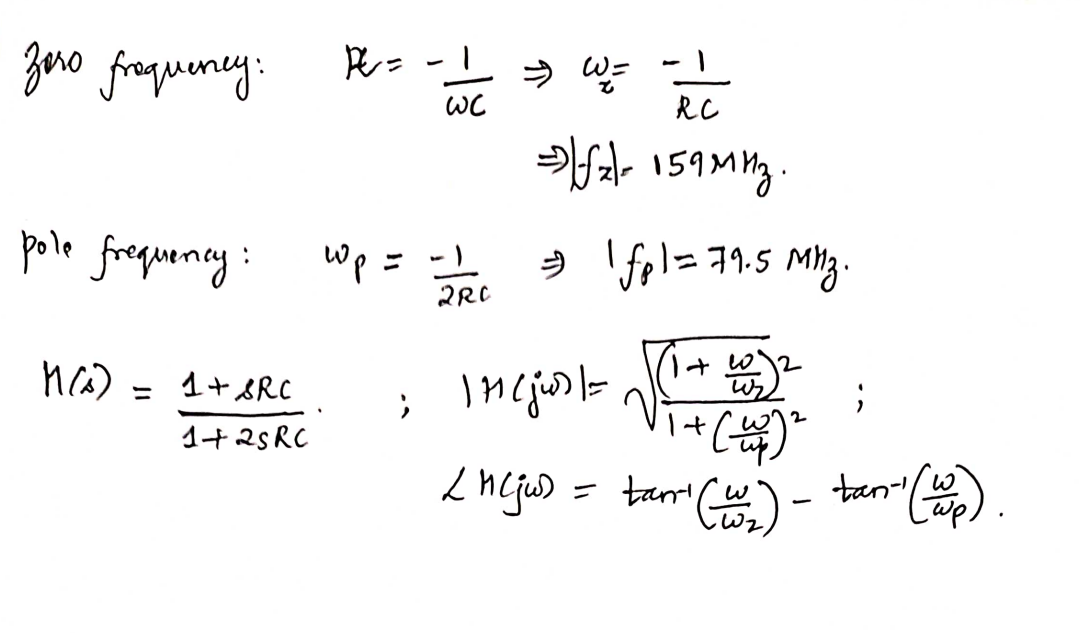 zero frequency: R = -1/ωC ⇒ ω_z = -1/RC
⇒ |f_z| = 159 MHz.
pole frequency: ω_p = -1/2RC ⇒ |f_p| = 79.5 MHz.
H(s) = (1 + sRC)/(1 + 2sRC) . ; |H(jω)| = √((1 + ω/ω_z)²/(1 + (ω/ω_p)²)) ;
∠H(jω) = tan⁻¹(ω/ω_z) - tan⁻¹(ω/ω_p).